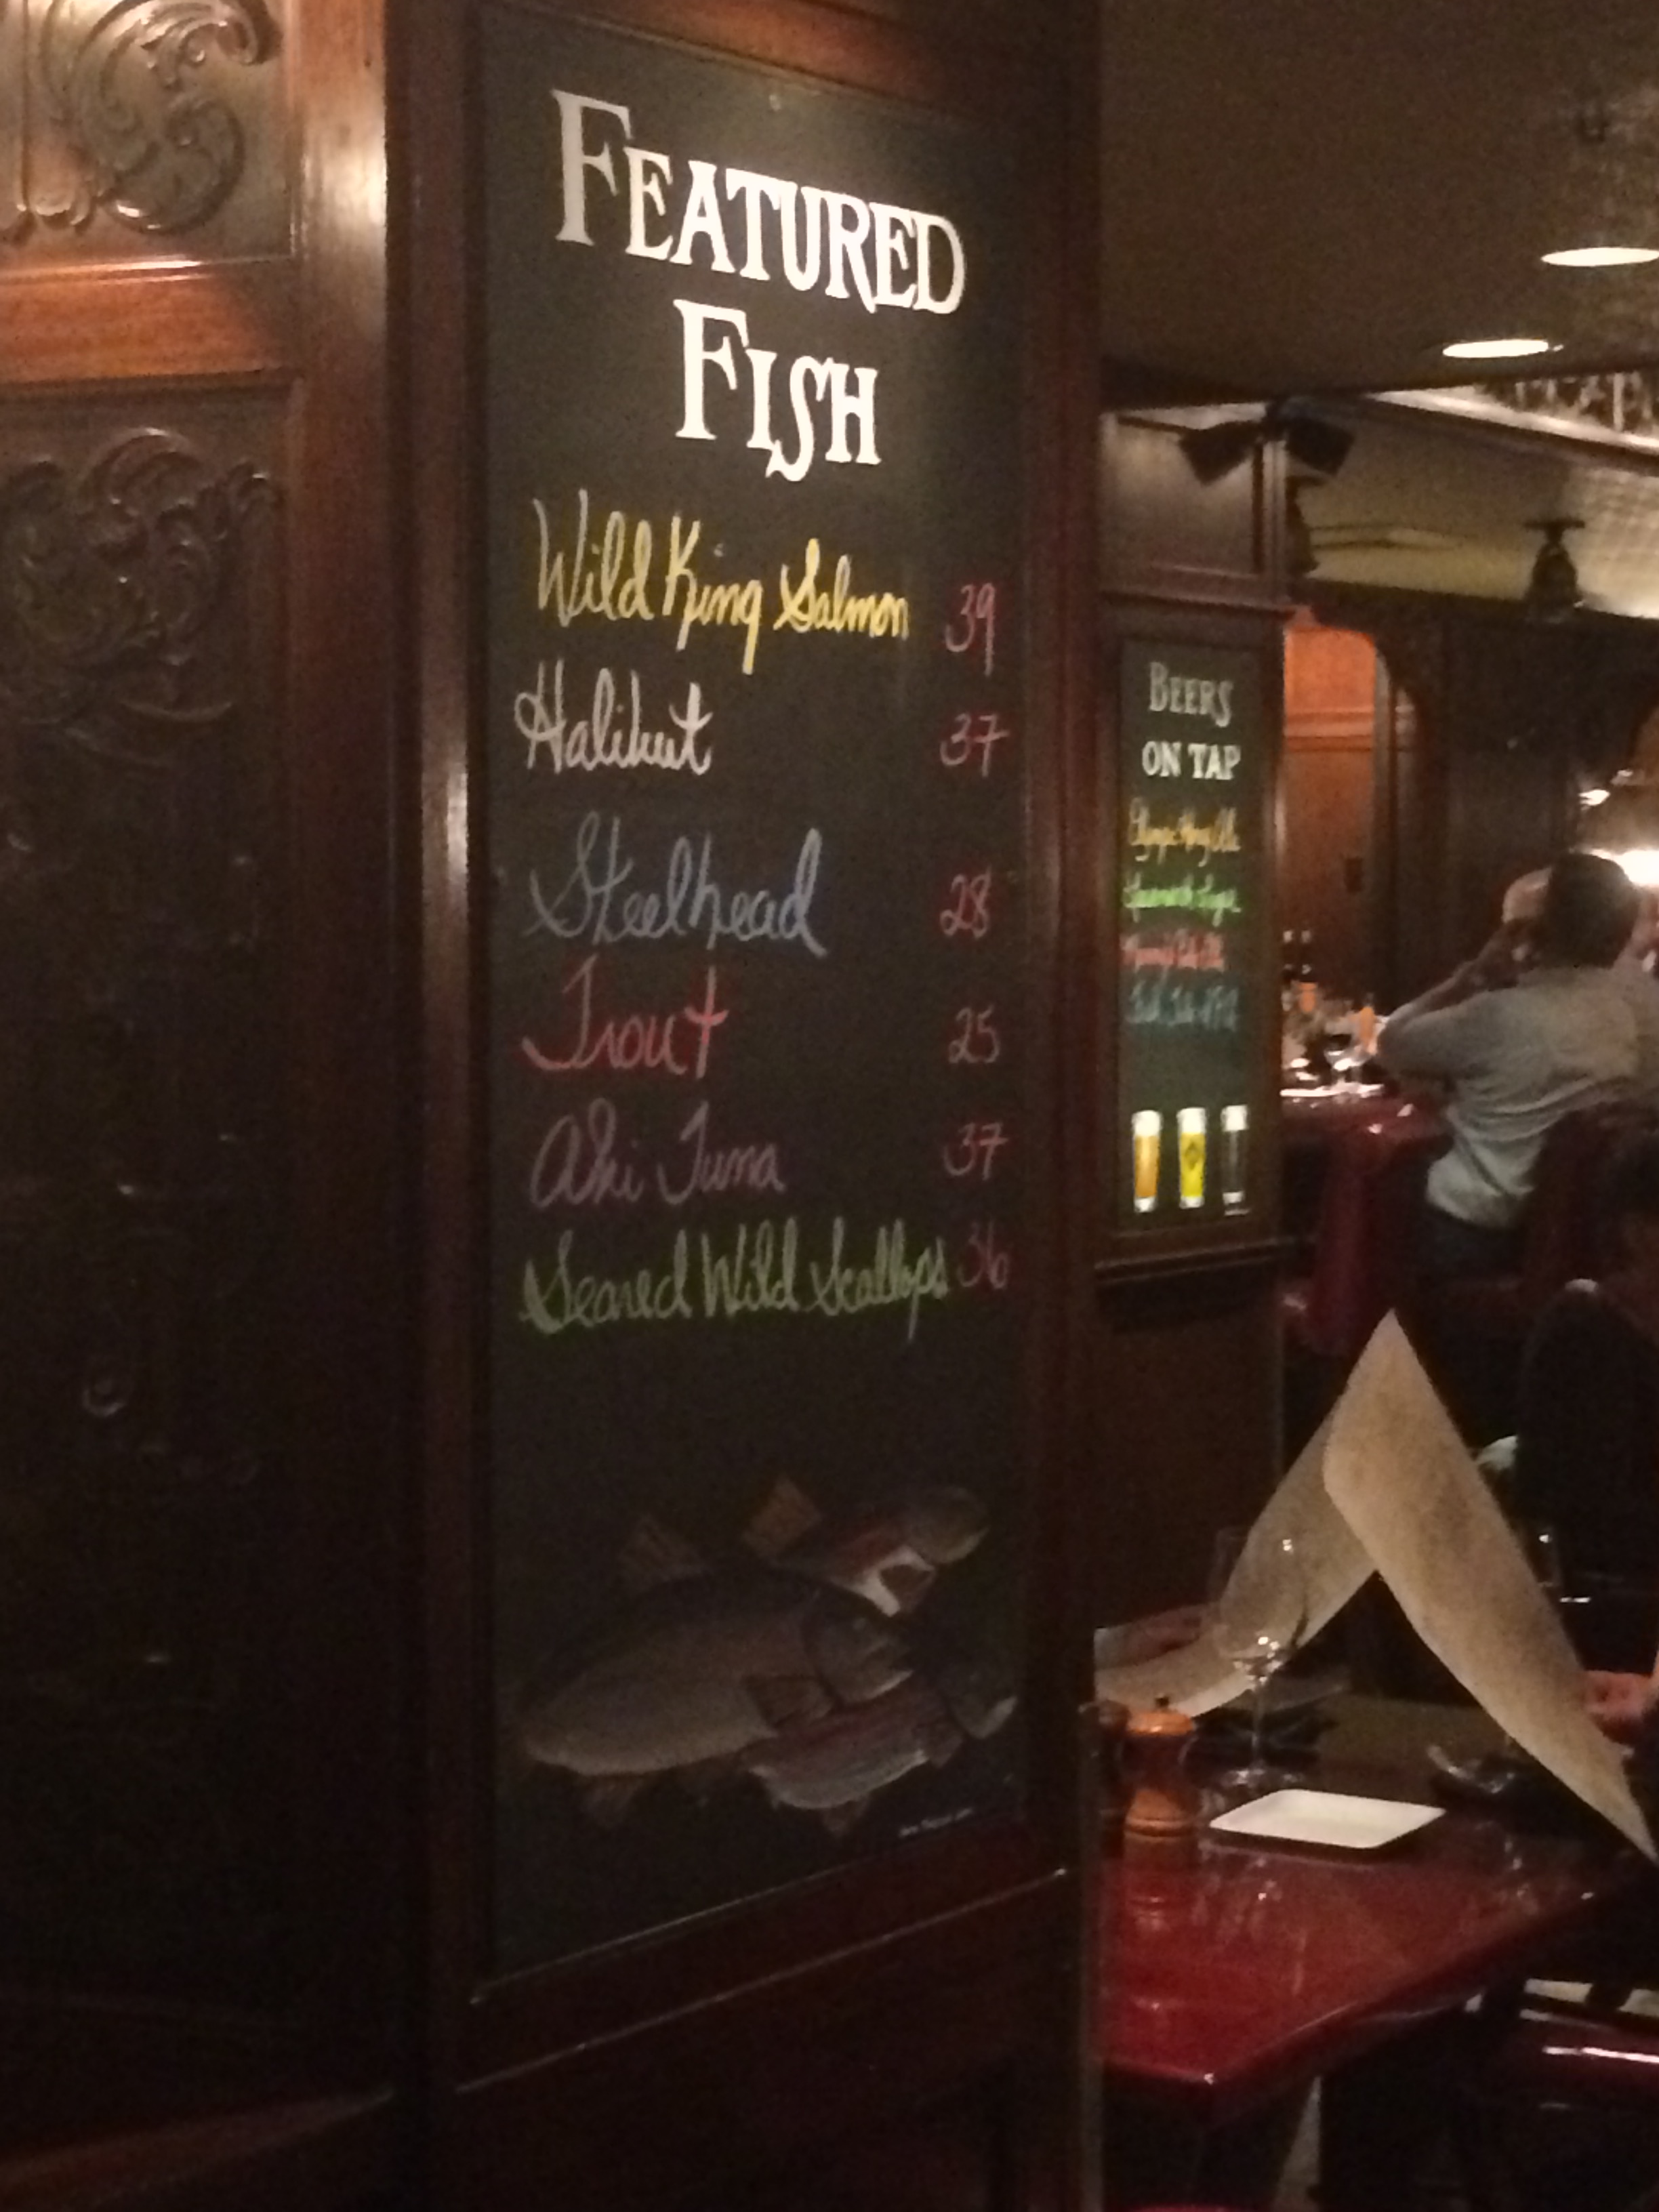 FEATURED
FISH
Wild King Salmon 39
Halibut 37
Steelhead 28
Trout 25
Ahi Tuna 37
Seared Wild Scallops 36
BEERS
ON TAP